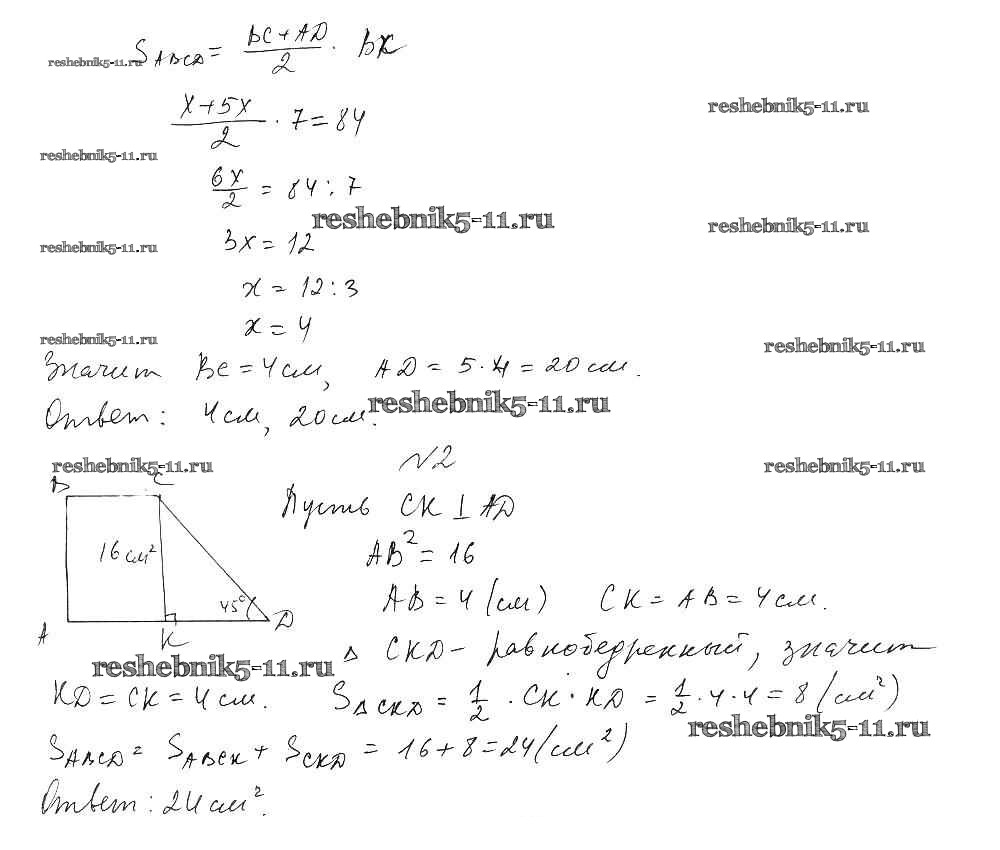 S ABCD = (BC + AD)/2 · BK
reshebnik5-11.ru
(x + 5x)/2 · 7 = 84
reshebnik5-11.ru
reshebnik5-11.ru
6x/2 = 84 : 7
reshebnik5-11.ru
reshebnik5-11.ru
3x = 12
reshebnik5-11.ru
x = 12 : 3
x = 4
reshebnik5-11.ru
reshebnik5-11.ru
Значит BC = 4 см, AD = 5 · 4 = 20 см.
Ответ: 4 см, 20 см.
reshebnik5-11.ru
№2
reshebnik5-11.ru
reshebnik5-11.ru
B C
16 см²
45°
A K D
Пусть CK ⊥ AD
AB² = 16
AB = 4 (см) CK = AB = 4 см.
△ CKD – равнобедренный, значит
reshebnik5-11.ru
KD = CK = 4 см. S△CKD = 1/2 · CK · KD = 1/2 · 4 · 4 = 8 (см²)
reshebnik5-11.ru
S ABCD = S ABCK + S CKD = 16 + 8 = 24 (см²)
Ответ: 24 см².